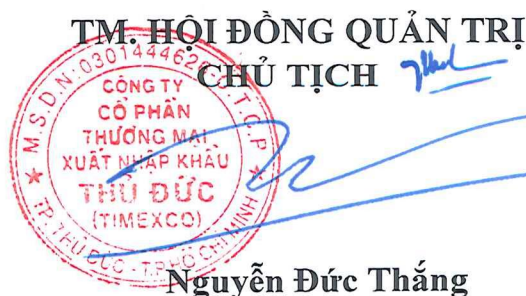 TM. HỘI ĐỒNG QUẢN TRỊ
CHỦ TỊCH
M.S.D.N:0301444626-C.T.C.P
CÔNG TY
CỔ PHẦN
THƯƠNG MẠI
XUẤT NHẬP KHẨU
THỦ ĐỨC
(TIMEXCO)
TP. THỦ ĐỨC - T.P HỒ CHÍ MINH
Nguyễn Đức Thắng